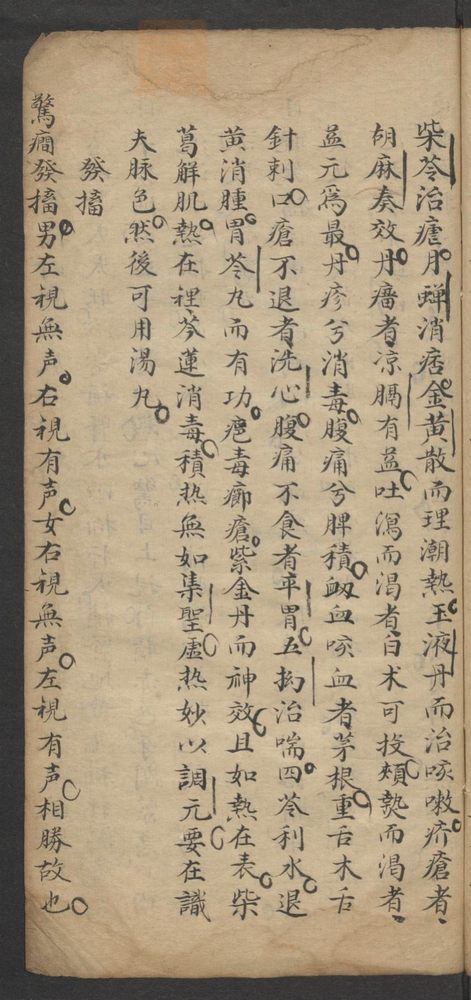 柴苓治瘧月蟬消痞金黃散而理潮熱玉液丹而治咳嗽疥瘡者
胡麻奏效丹瘤者凉膈有益吐瀉而渴者白术可投頰熱而渴者
益元爲最丹疹兮消毒腹痛兮脾積衂血咳血者茅根重舌木舌
針刺口瘡不退者洗心腹痛不食者平胃五拗治喘四苓利水退
黃消腫胃苓丸而有功瘡毒癤瘡紫金丹而神效且如熱在表柴
葛解肌熱在裡芩連消毒積热無如集聖虛热妙以調元要在識
夫脉色然後可用湯丸
發搐
驚癎發搐男左視無声右視有声女右視無声左視有声相勝故也